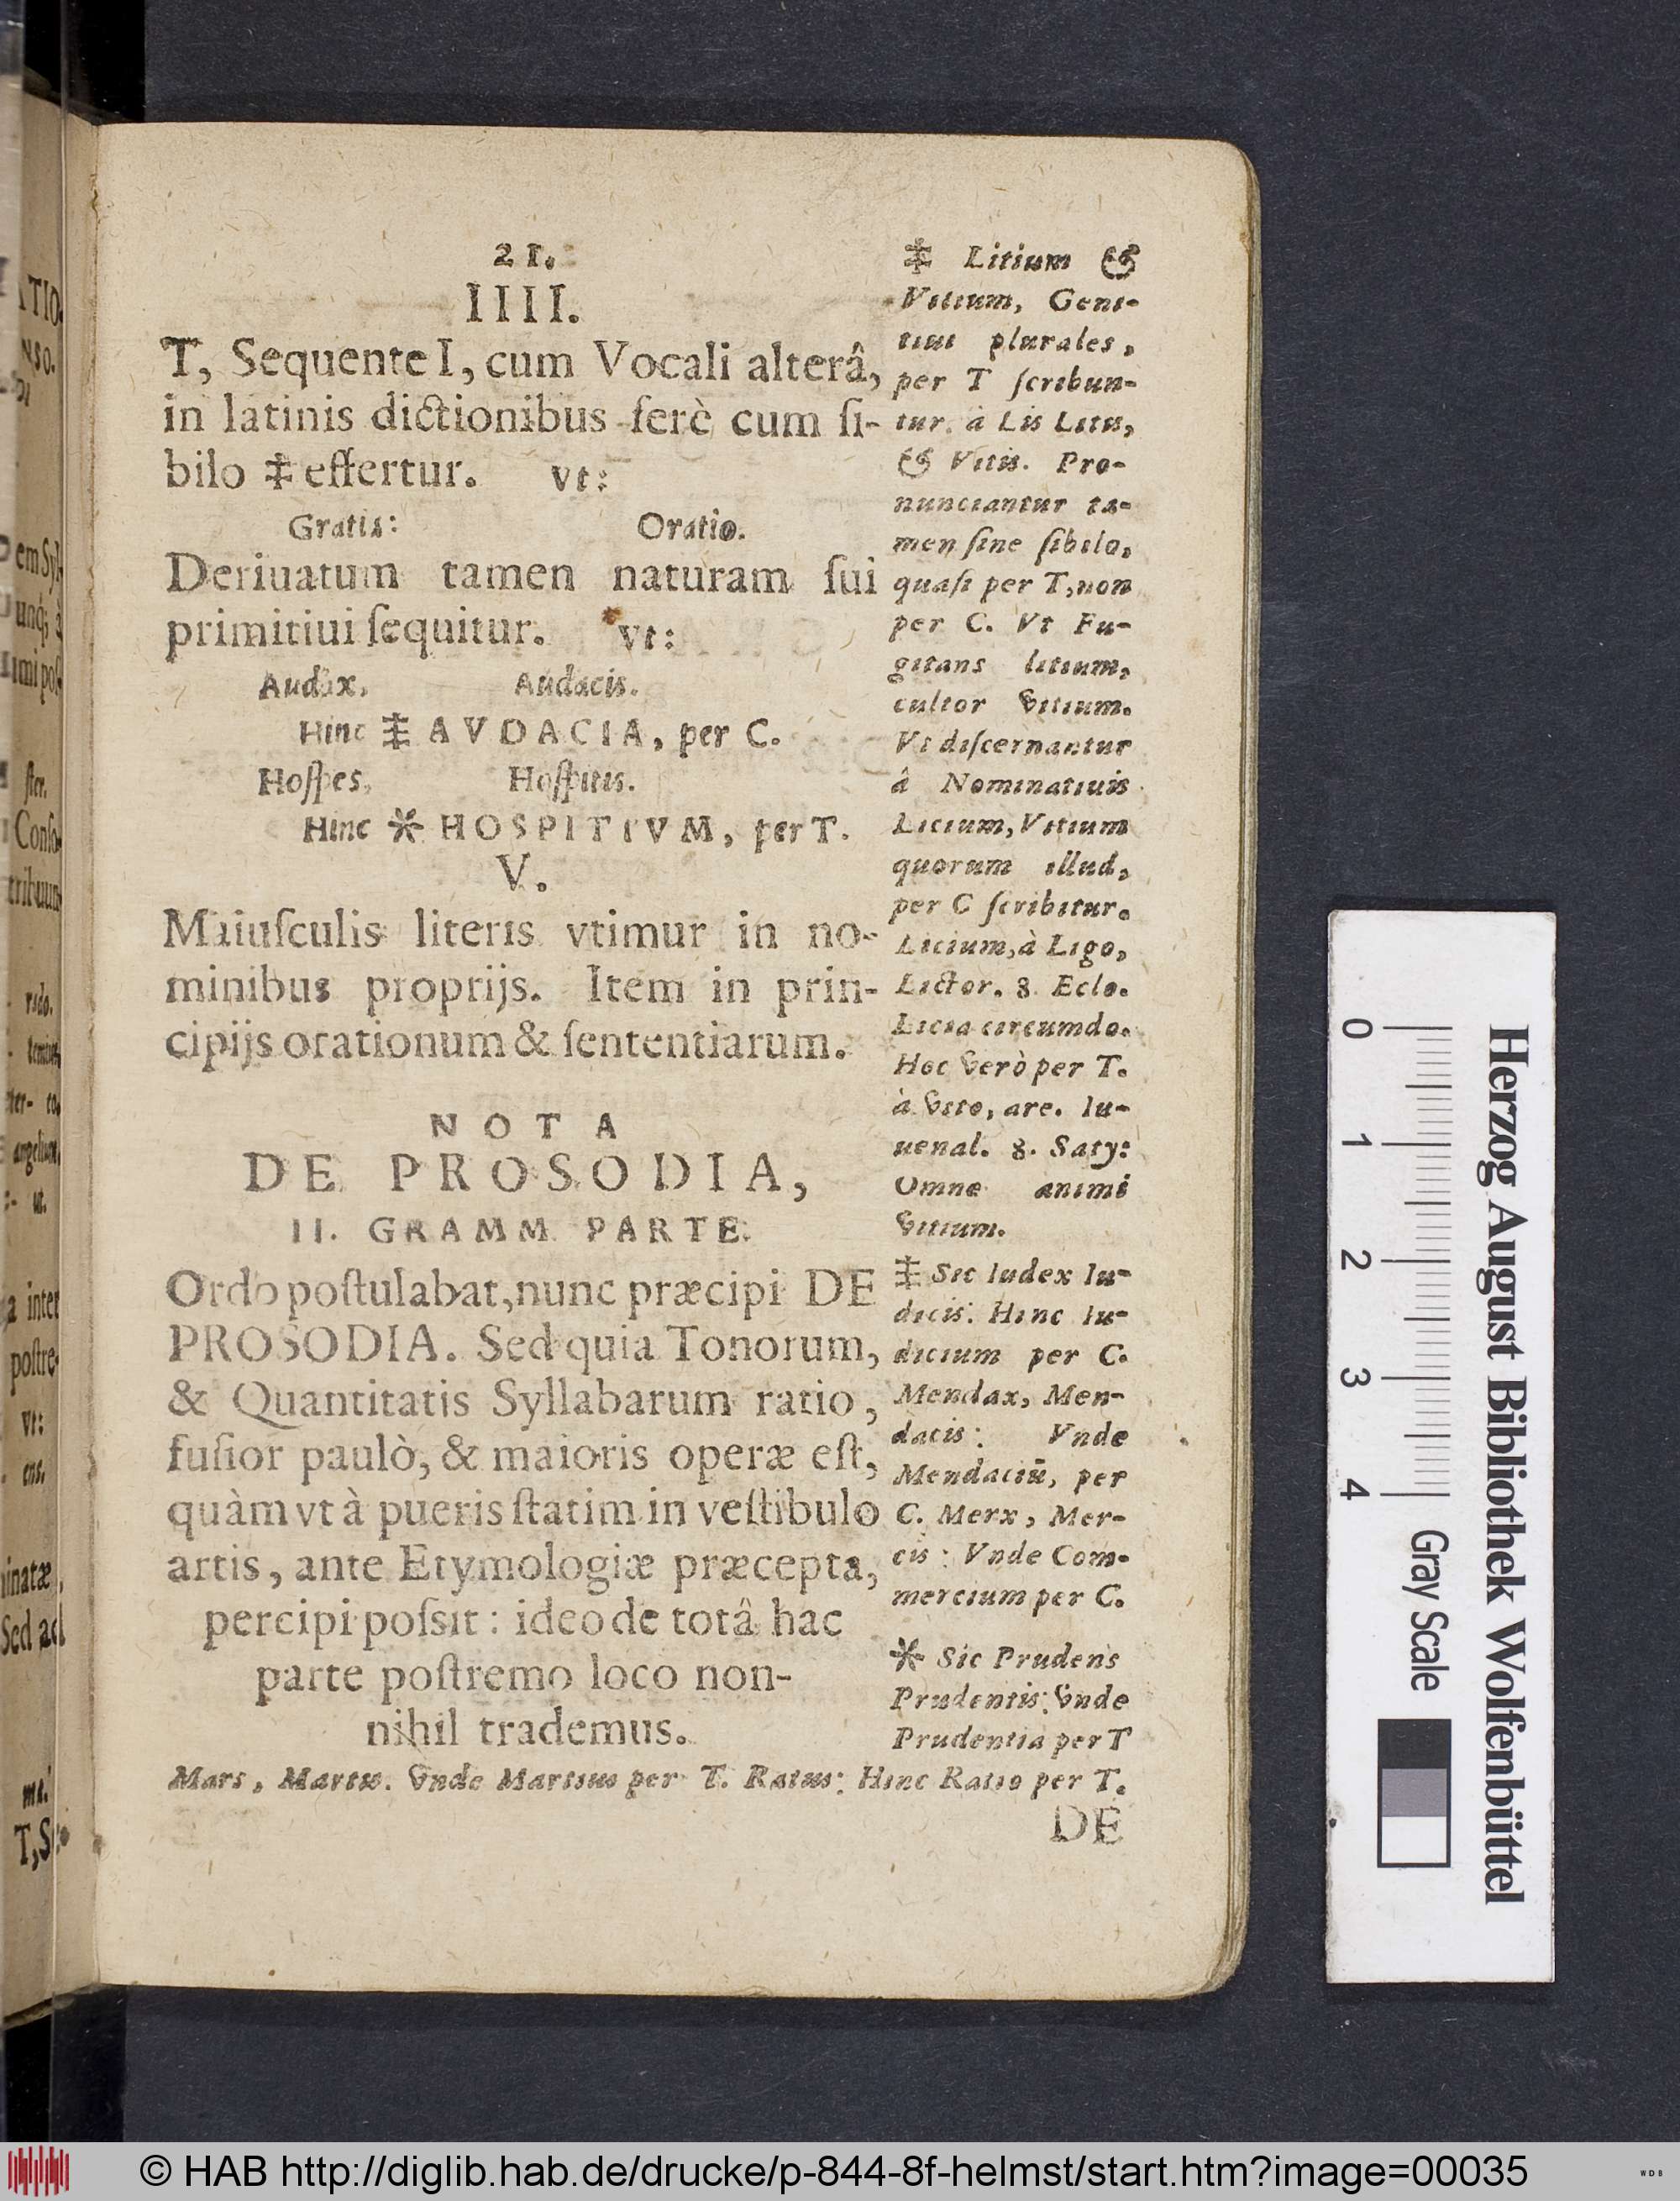 21.
IIII.
T, Sequente I, cum Vocali alterâ,
in latinis dictionibus ferè cum ſi-
bilo ⹋ effertur. vt:
Gratis: Oratio.
Deriuatum tamen naturam ſui
primitiui ſequitur. vt:
Audax, Audacis.
Hinc ⹋ AVDACIA, per C.
Hoſpes, Hoſpitis.
Hinc * HOSPITIVM, per T.
V.
Maiuſculis literis vtimur in no-
minibus proprijs. Item in prin-
cipijs orationum & ſententiarum.
NOTA
DE PROSODIA,
II. GRAMM. PARTE.
Ordo poſtulabat, nunc præcipi DE
PROSODIA. Sed quia Tonorum,
& Quantitatis Syllabarum ratio,
fuſior paulò, & maioris operæ eſt,
quàm vt à pueris ſtatim in veſtibulo
artis, ante Etymologiæ præcepta,
percipi poſsit: ideo de totâ hac
parte poſtremo loco non-
nihil trademus.
⹋ Litium &
Vitium, Geni-
tiui plurales,
per T ſcribun-
tur. à Lis Litis,
& Vitis. Pro-
nunciantur ta-
men ſine ſibilo,
quaſi per T, non
per C. Vt Fu-
gitans litium,
cultor vitium.
Vt diſcernantur
â Nominatiuis
Licium, Vitium
quorum illud,
per C ſcribitur.
Licium, à Ligo,
Lictor. 8. Eclo.
Licia circumdo.
Hoc verò per T.
à vito, are. Iu-
uenal. 8. Saty:
Omne animi
vitium.
⹋ Sic Iudex Iu-
dicis: Hinc Iu-
dicium per C.
Mendax, Men-
dacis: Vnde
Mendaciū, per
C. Merx, Mer-
cis: Vnde Com-
mercium per C.
* Sic Prudens
Prudentis: vnde
Prudentia per T
Mars, Martis. vnde Martius per T. Ratus: Hinc Ratio per T.
DE
Herzog August Bibliothek Wolfenbüttel
0 1 2 3 4 Gray Scale
© HAB http://diglib.hab.de/drucke/p-844-8f-helmst/start.htm?image=00035